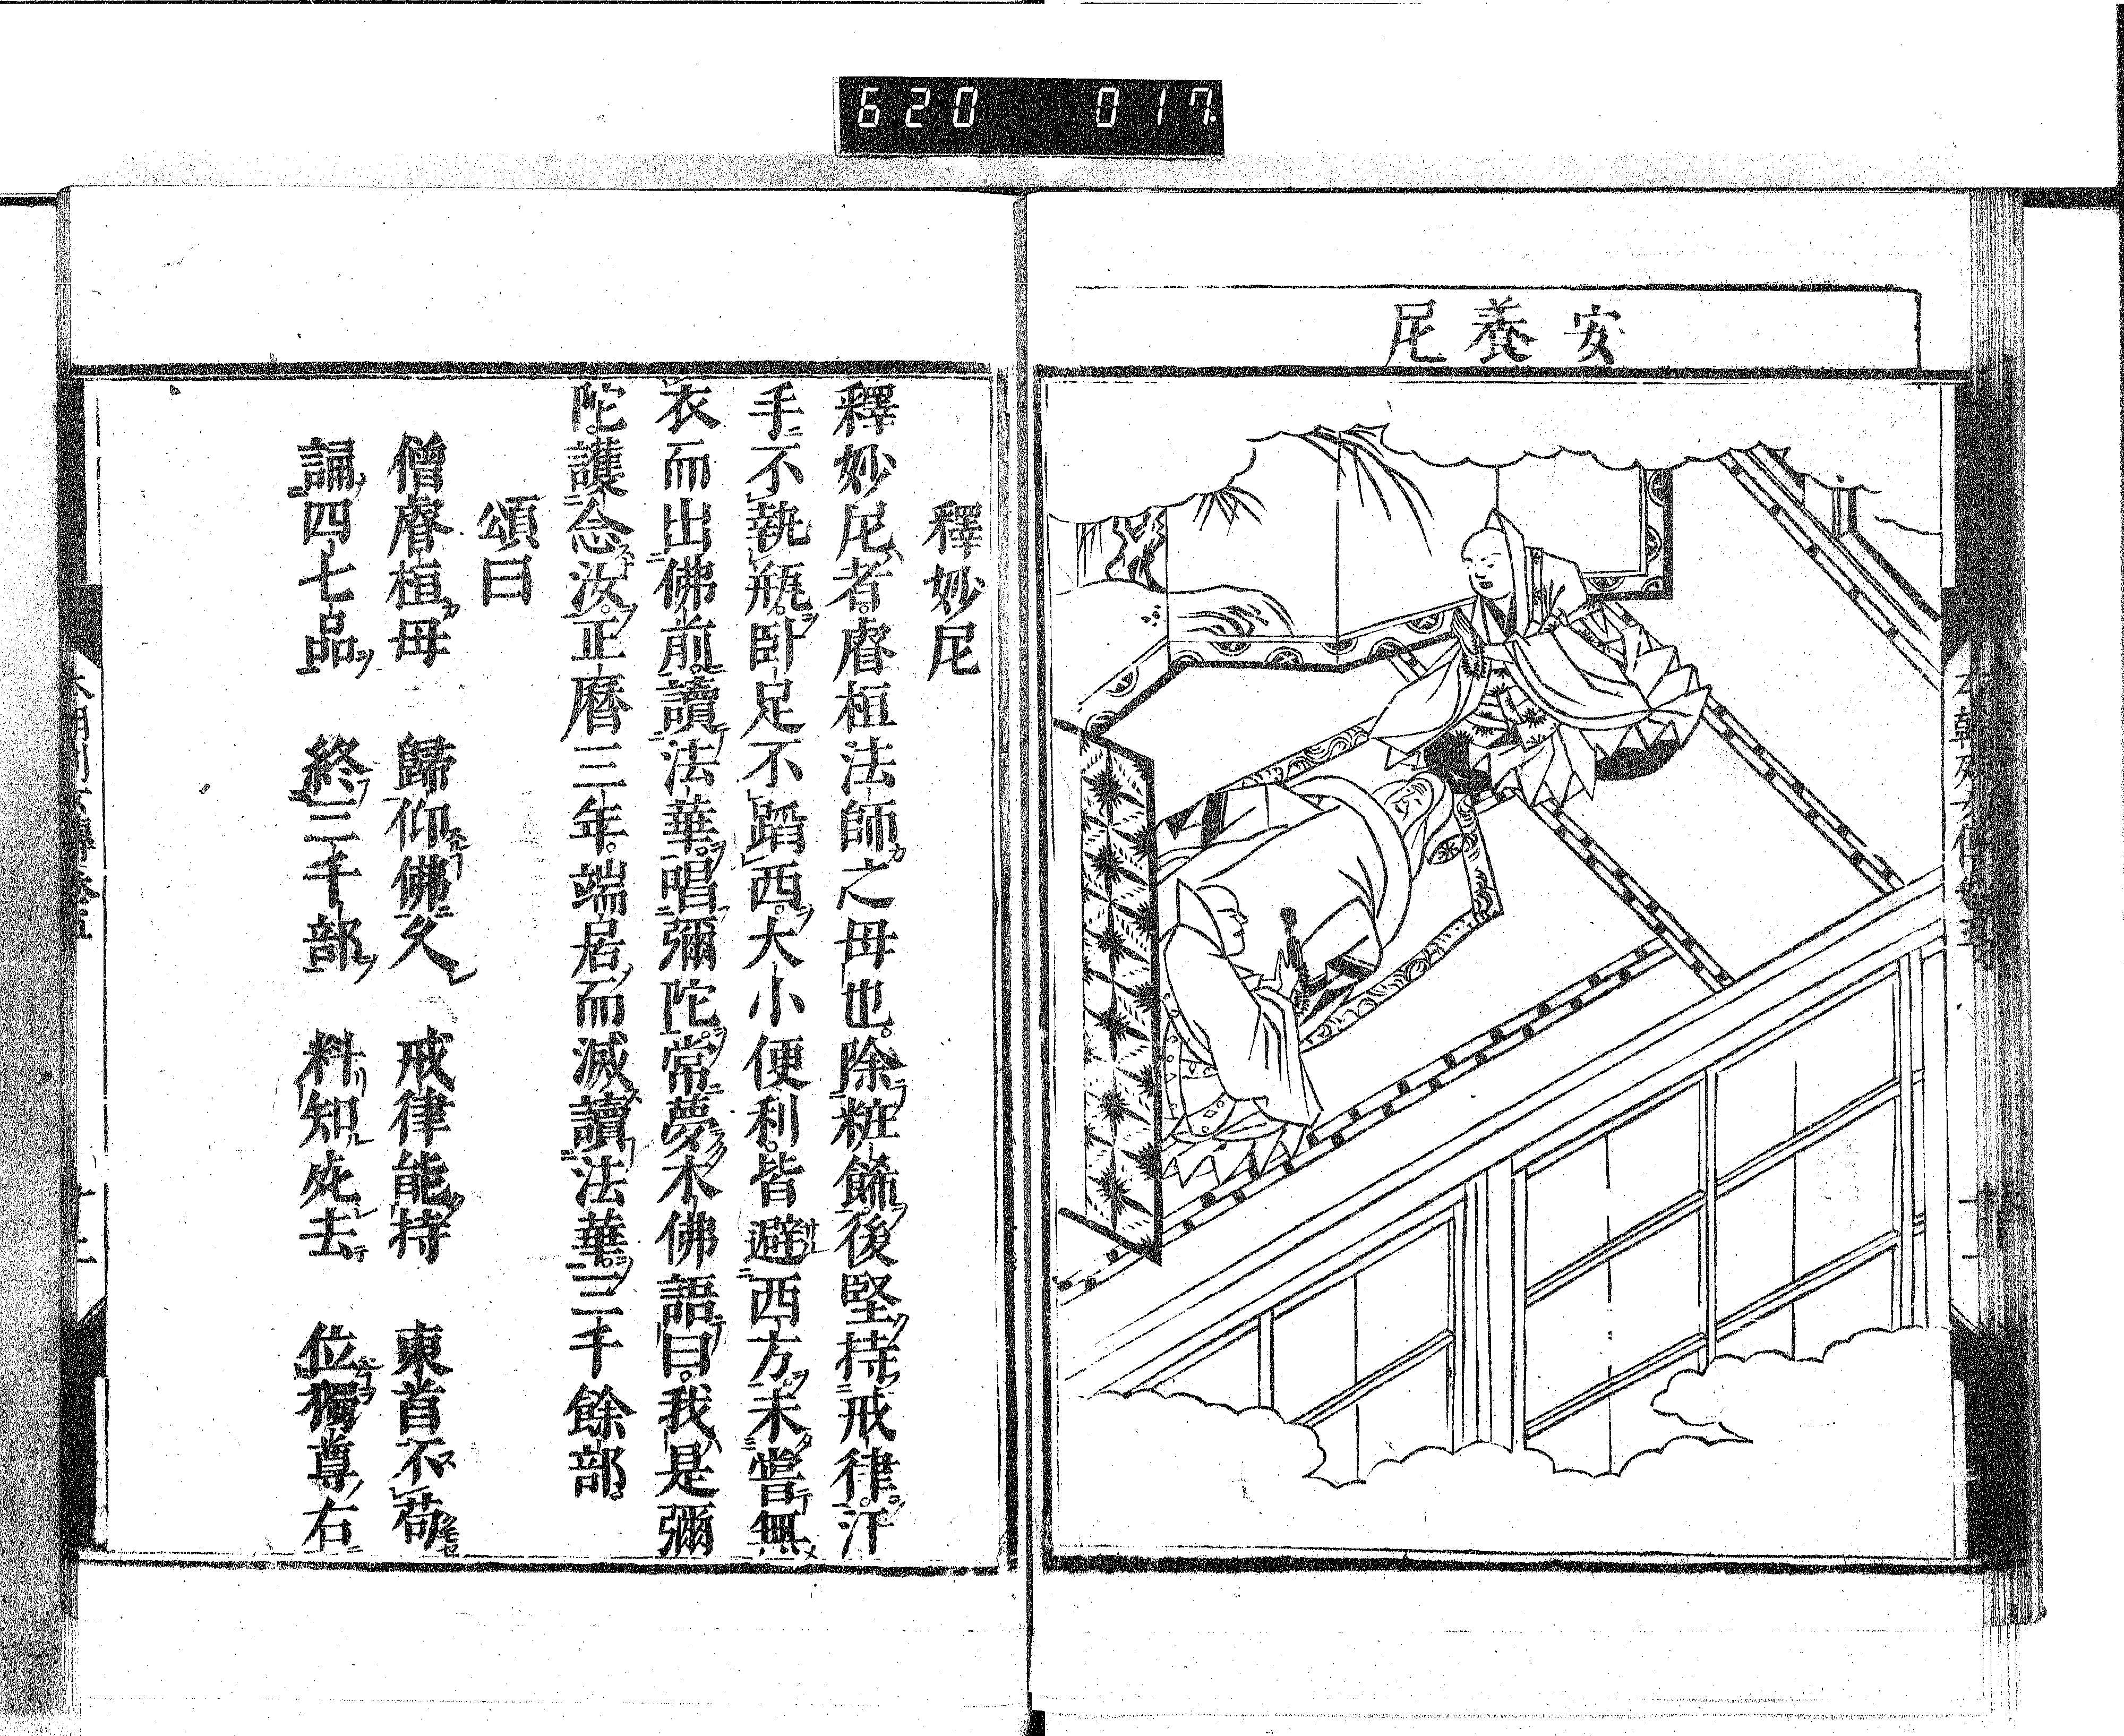 620 017.
安養尼
釋妙尼
釋妙尼者。睿桓法師之母也。除粧餙後堅持戒律。汗
手不執瓶。卧足不蹈西。大小便利。皆避西方。未嘗無
衣而出佛前。讀法華。唱彌陀。常夢木佛語曰。我是彌
陀。護念汝。正曆三年。端居而滅。讀法華。三千餘部。
頌曰
僧睿桓母 歸仰佛久 戒律能持 東首不苟
誦四七品 終三千部 料知死去 位獨尊右